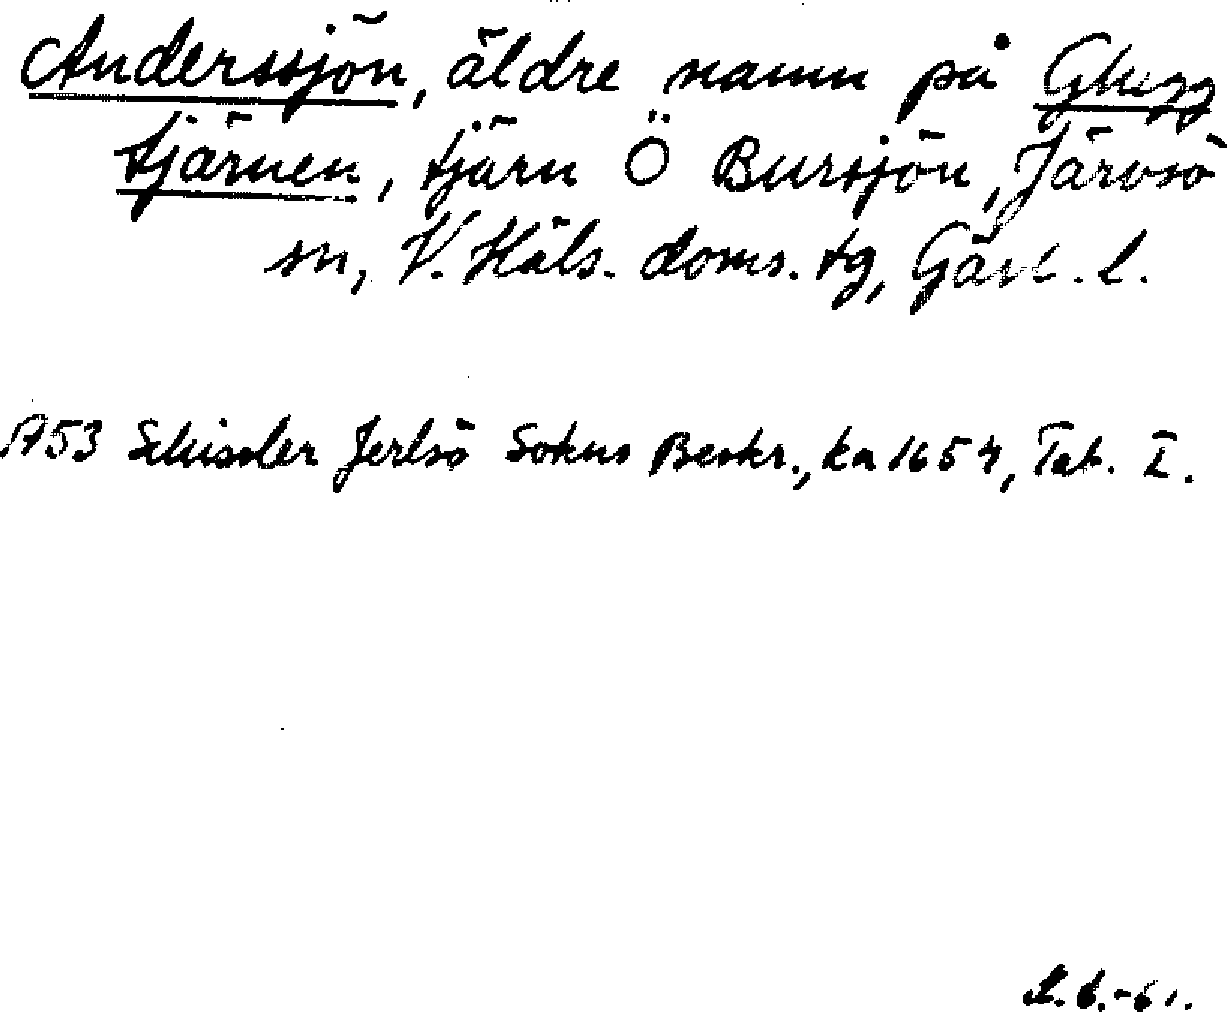 Anderssjön, äldre namn på Glugg
tjärnen, tjärn Ö Bursjön, Järvsö
sn, V. Häls. doms. tg, Gävl. l.
1753 Schissler Jerlsö Sokns Beskr., ka 1654, Tab. I.